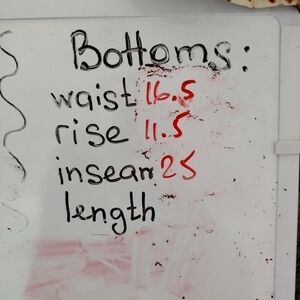 Bottoms:
waist 16.5
rise 11.5
inseam 25
length